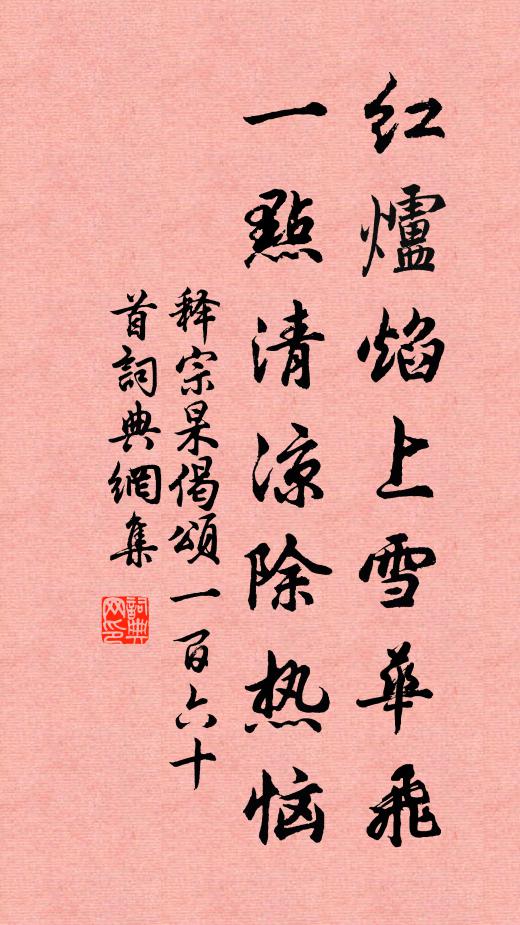 红爐焰上雪華飛
一點清涼除热恼
释宗杲偈頌一百六十
首詞典網集
詞典
网印